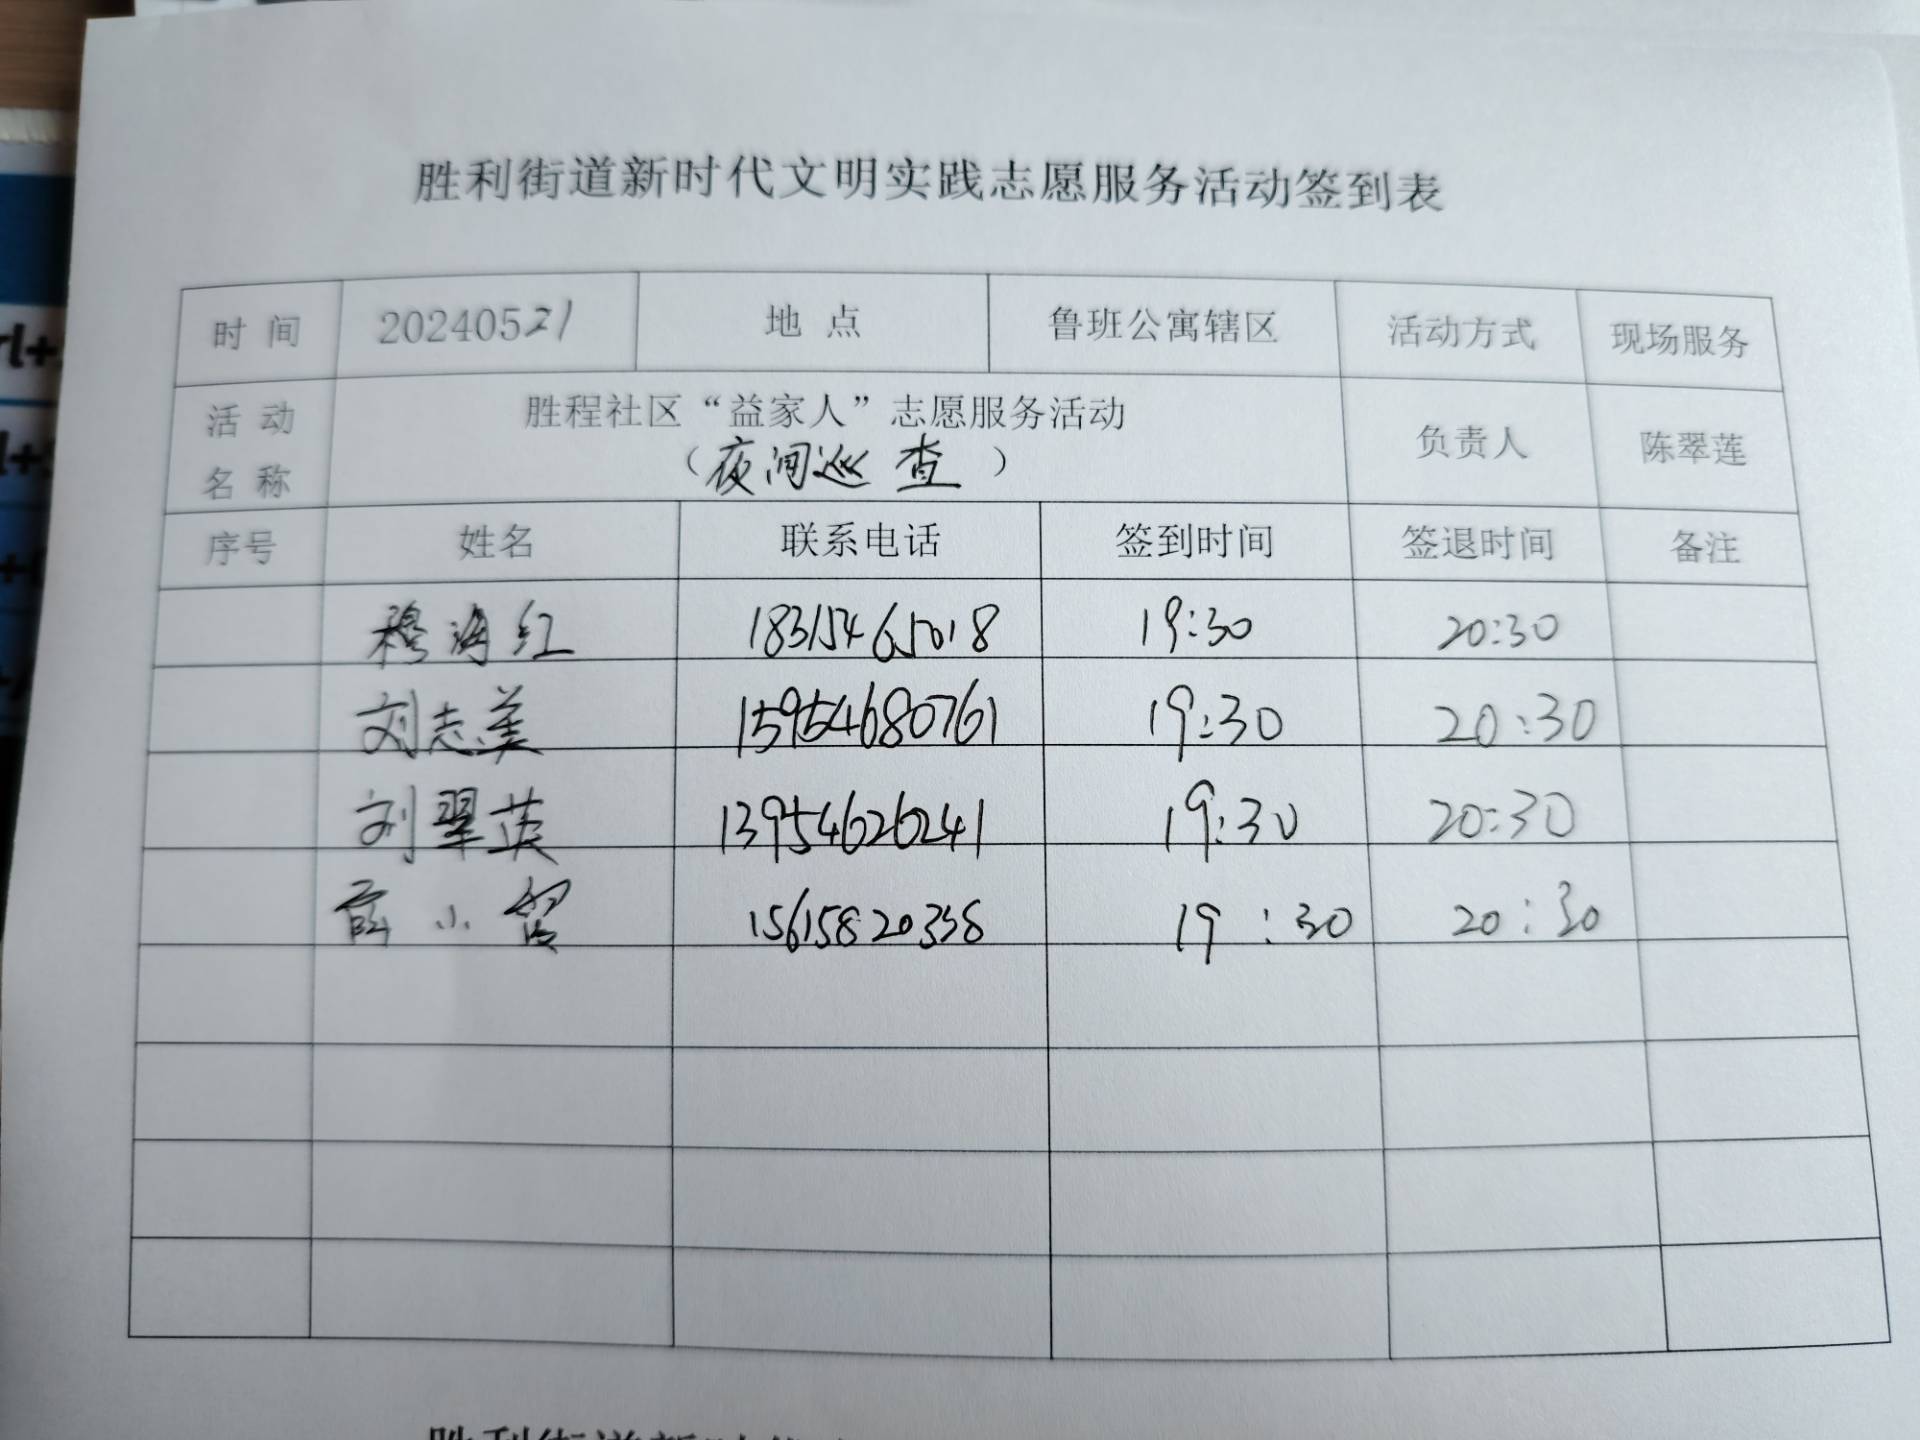 胜利街道新时代文明实践志愿服务活动签到表
时间 20240521 地点 鲁班公寓辖区 活动方式 现场服务
活动名称 胜程社区“益家人”志愿服务活动
（夜间巡查） 负责人 陈翠莲
序号 姓名 联系电话 签到时间 签退时间 备注
穆海红 18315465018 19:30 20:30
刘志美 15954680761 19:30 20:30
刘翠英 13954626241 19:30 20:30
薛小 15615820358 19:30 20:30